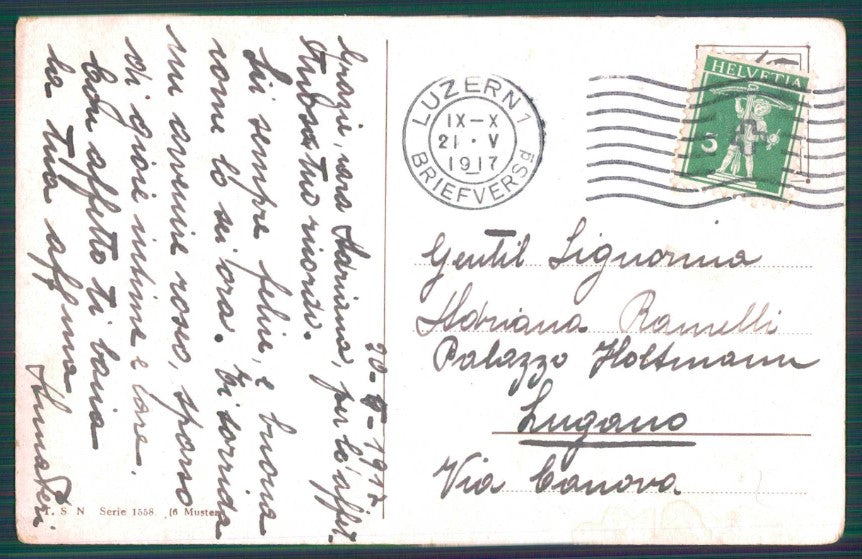 20-5-1917
Grazie, cara Adriana, per l'affet-
tuoso tuo ricordo.
Sii sempre felice, e buona
come lo sei ora. Ti sorrida
un avvenire roseo, sparso
di gioie intime e care.
Con affetto ti bacia
la tua aff.ma
T. S. N. Serie 1558. (6 Muster)
LUZERN 1
IX-X
21 · V
1917
BRIEFVERSd
HELVETIA
5
Gentil Signorina
Adriana Ramelli
Palazzo Holtmann
Lugano
Via Canova